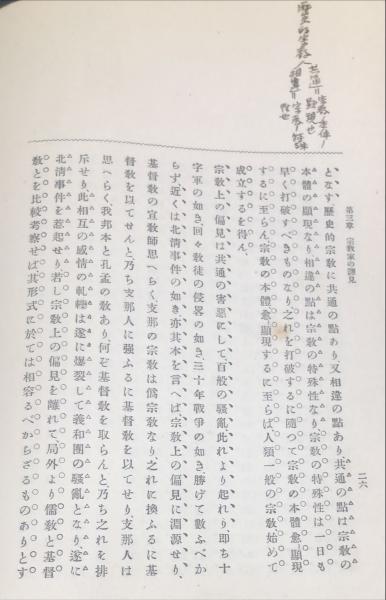 歴史的宗教ハ
共通ノ
宗教ノ本体ノ
顕現也
相違ハ宗教ノ特殊
性也
第三章 宗教家の謬見
二六
となす、歴史的宗教に共通の點あり、又相違の點あり、共通の點は宗教の
本體の顯現なり、相違の點は宗教の特殊性なり、宗教の特殊性は一日も
早く打破すべきものなり、之れを打破するに隨つて宗教の本體愈顯現
するに至らん、宗教の本體愈顯現するに至らば人類一般の宗教始めて
成立するを得ん、
宗教上の偏見は共通の害惡にして、百般の騷亂此れより起れり、即ち十
字軍の如き、回々教徒の侵畧の如き、三十年戰爭の如き、勝げて數ふべか
らず、近くは北淸事件の如き、亦其本を言へば、宗教上の偏見に淵源せり、
基督教の宣教師思へらく、支那の宗教は僞宗教なり、之れに換ふるに基
督教を以てせんと、乃ち支那人に強ふるに基督教を以てせり、支那人は
思へらく、我邦本と孔孟の教あり、何ぞ基督教を取らんと、乃ち之れを排
斥せり、此相互の感情の軋轢は遂に爆裂して義和團の騷亂となり、遂に
北淸事件を惹起せり、若し宗教上の偏見を離れて、局外より儒教と基督
教とを比較考察せば、其形式に於ては相容るべからざるものありとす